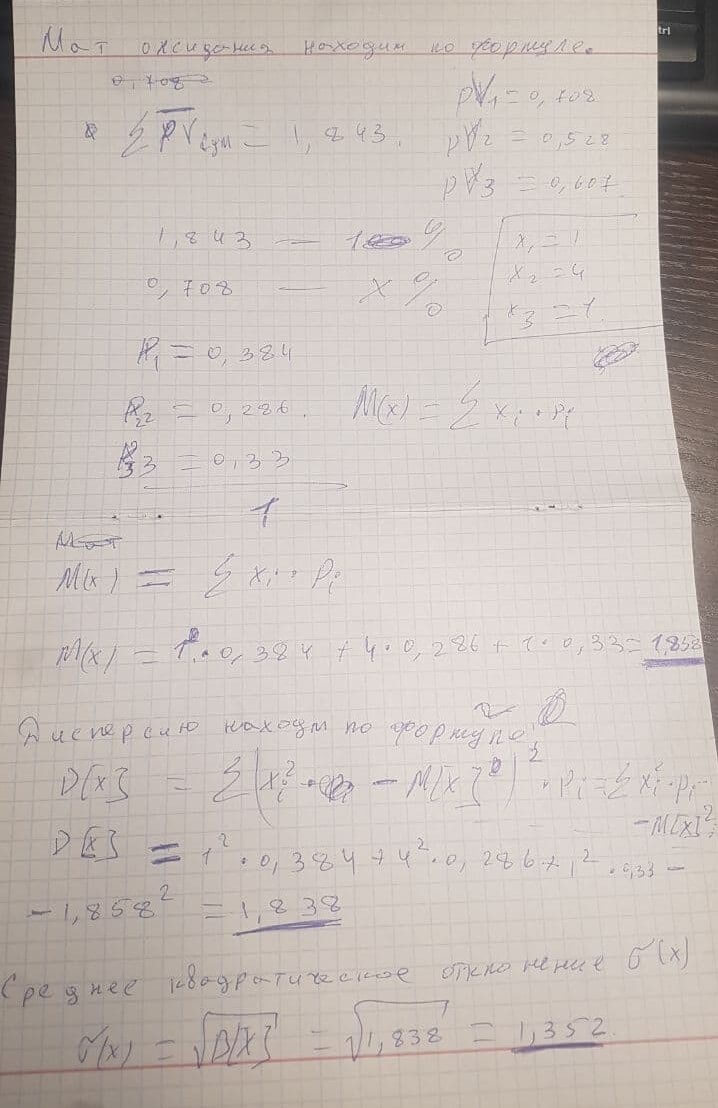 Мат ожидания находим по формуле.
0,708
pV1 = 0,708
∑ pV сум = 1,843.
pV2 = 0,528
pV3 = 0,607
1,843 — 1 %
0,708 — x %
x1 = 1
x2 = 4
x3 = 1.
P1 = 0,384
P2 = 0,286.
M(x) = ∑ xi · pi
P3 = 0,33
1
Мат
M(x) = ∑ xi · Pi
M(x) = 1 · 0,384 + 4 · 0,286 + 1 · 0,33 = 1,858
Дисперсию находм по формуло
D[x] = ∑(xi² - M[x]²)² · Pi = ∑xi² · pi - M[x]²
D[x] = 1² · 0,384 + 4² · 0,286 + 1² · 0,33 -
- 1,858² = 1,838
Среднее квадратическое отклонение σ(x)
σ(x) = √D[X] = √1,838 = 1,352.